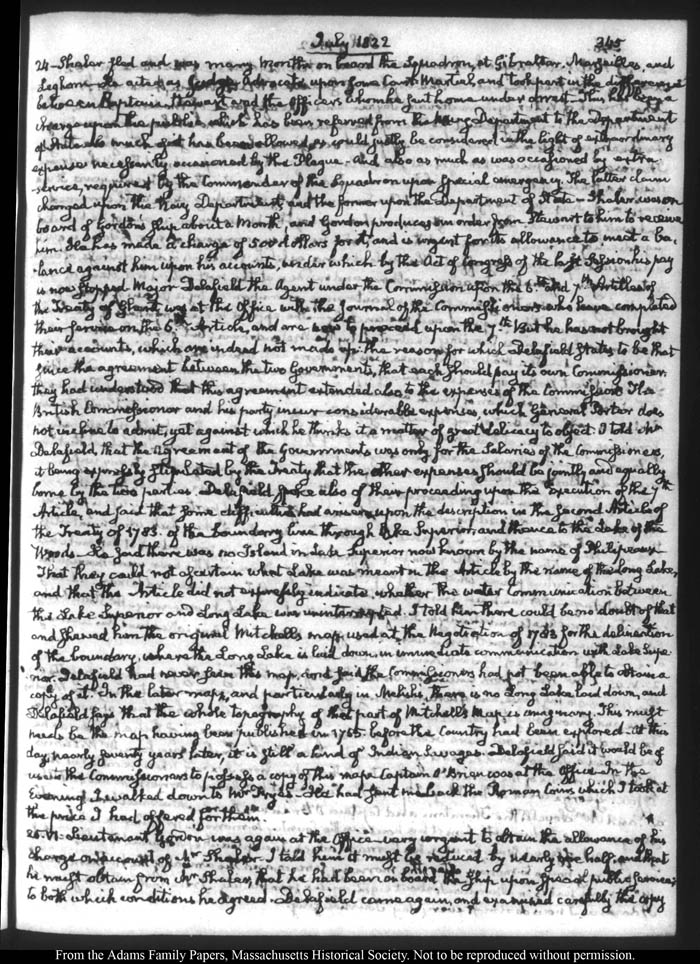 July 1822
345
24 - Shaler fled and was many Months on board the Squadron, at Gibraltar, Marseilles, and
Leghorn. He acted as Judge Advocate upon some Courts Martial, and took part in the differences
between Captain Stewart and the Officers whom he sent home under arrest. This has been a
charge upon the public, which has been referred from the Navy Department to the Department
of State. So much of it has been allowed, as could justly be considered in the light of extraordinary
expenses necessarily occasioned by the Plague - and also as much as was occasioned by extra
service, required by the Commander of the Squadron upon special emergency. The latter claim
charged upon the Navy Department, and the former upon the Department of State - Shaler was on
board of Gordon's ship about a Month, and Gordon produces an order from Stewart to him to receive
him. He has made a charge of 500 dollars for it, and is urgent for its allowance to meet a ba-
lance against him upon his accounts, under which by the Act of Congress of the last Session his pay
is now stopped. Major Delafield the Agent under the Commission upon the 6th. and 7th. Articles of
the Treaty of Ghent was at the Office with the Journal of the Commissioners who have completed
their service on the 6th. Article, and are now to proceed upon the 7th. But he has not brought
their accounts, which are indeed not made up: the reason for which Delafield states to be that
since the agreement between the two Governments, that each should pay its own Commissioner,
they had understood that this agreement extended also to the expenses of the Commission. The
British Commissioner and his party incur considerable expenses, which General Porter does
not incline to admit, yet against which he thinks it a matter of great delicacy to object. I told Mr.
Delafield, that the agreement of the Governments was only for the Salaries of the Commissioners,
it being expressly stipulated by the Treaty that the other expenses should be jointly and equally
borne by the two parties. Delafield spoke also of their proceeding upon the execution of the 7th
Article, and said that some difficulties had arisen upon the description in the second Article of
the Treaty of 1783. of the boundary line through Lake Superior, and thence to the Lake of the
Woods - He said there was no Island in Lake Superior now known by the name of Philipeaux -
That they could not ascertain what Lake was meant in the Article by the name of the Long Lake,
and that the Article did not expressly indicate, whether the water communication between
this Lake Superior and Long Lake was uninterrupted. I told him there could be no doubt of that
and shewed him the original Mitchell's map, used at the Negotiation of 1783 for the delineation
of the boundary, where the Long Lake is laid down, in immediate communication with Lake Supe-
rior. Delafield had never seen this map, and said the Commissioners had not been able to obtain a
copy of it. In the later maps, and particularly in Melish's, there is no Long Lake laid down, and
Delafield says that the whole topography of that part of Mitchell's Map is imaginary. This must
needs be the map having been published in 1755. before the Country had been explored. At this
day, nearly seventy years later, it is still a land of Indian Savages. Delafield said it would be of
use to the Commissioners to possess a copy of this map. Captain O'Brien was at the Office. In the
Evening I walked down to Mr. Fry's. He had sent me back the Roman Coins which I took at
the price I had offered for them.
25. VI. Lieutenant Gordon was again at the Office very urgent to obtain the allowance of his
charge on account of Mr. Shaler. I told him it must be reduced by nearly one half, and that
he must obtain from Mr. Shaler, that he had been on board the ship upon special public service;
to both which conditions he agreed. Delafield came again, and examined carefully the copy
From the Adams Family Papers, Massachusetts Historical Society. Not to be reproduced without permission.